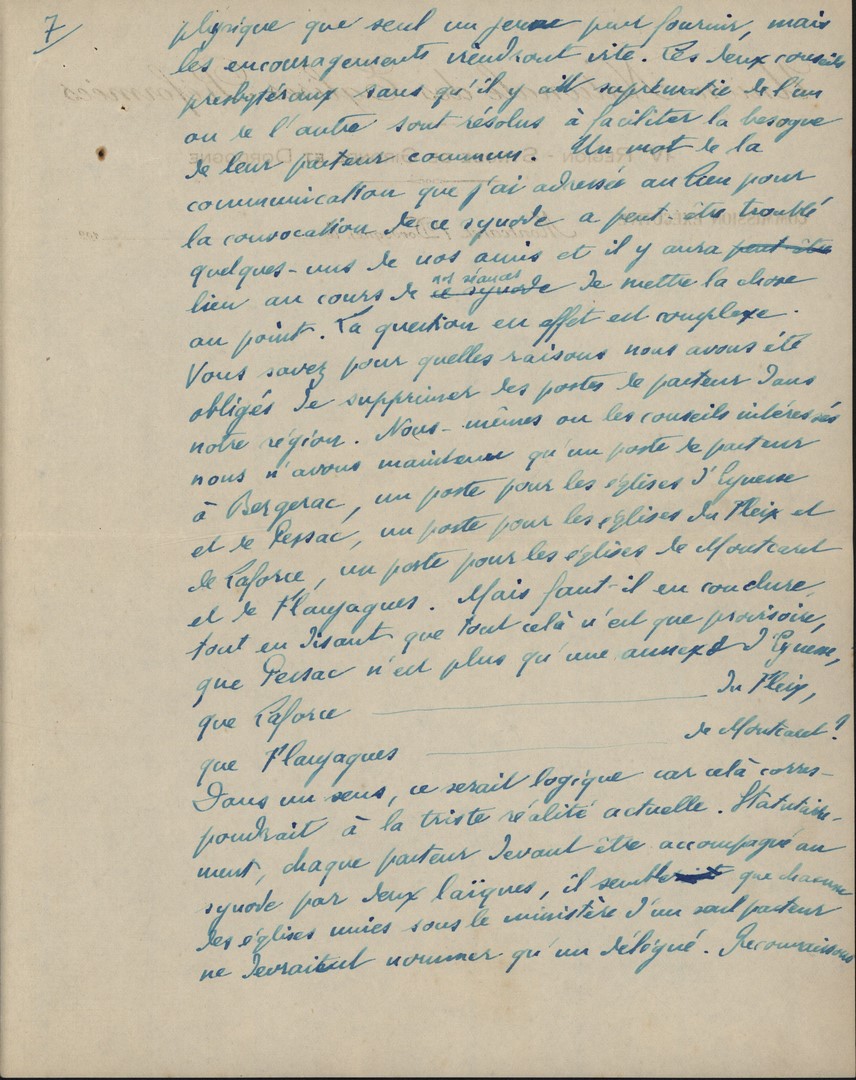 7
physique que seul un jeune peut fournir, mais
les encouragements viendront vite. Les deux conseils
presbytéraux sans qu'il y ait suprématie de l'un
ou de l'autre sont résolus à faciliter la besogne
de leur pasteur commun. Un mot de la
communication que j'ai adressée au Lien pour
la convocation de ce synode a peut-être troublé
quelques-uns de nos amis et il y aura peut-être
lieu au cours de ce synode nos séances de mettre la chose
au point. La question en effet est complexe.
Vous savez pour quelles raisons nous avons été
obligés de supprimer des postes de pasteur dans
notre région. Nous-mêmes ou les conseils intéressés
nous n'avons maintenu qu'un poste de pasteur
à Bergerac, un poste pour les églises d'Eynesse
et de Pessac, un poste pour les églises du Fleix et
de Laforce, un poste pour les églises de Montcaret
et de Flaujagues. Mais faut-il en conclure,
tout en disant que tout celà n'est que provisoire,
que Pessac n'est plus qu'une annexe d'Eynesse,
que Laforce ――― du Fleix,
que Flaujagues ――― de Montcaret?
Dans un sens, ce serait logique car celà corres-
pondrait à la triste réalité actuelle. Statutaire-
ment, chaque pasteur devant être accompagné au
synode par deux laïques, il semble que chacune
des églises unies sous le ministère d'un seul pasteur
ne devraient nommer qu'un délégué. Reconnaissons